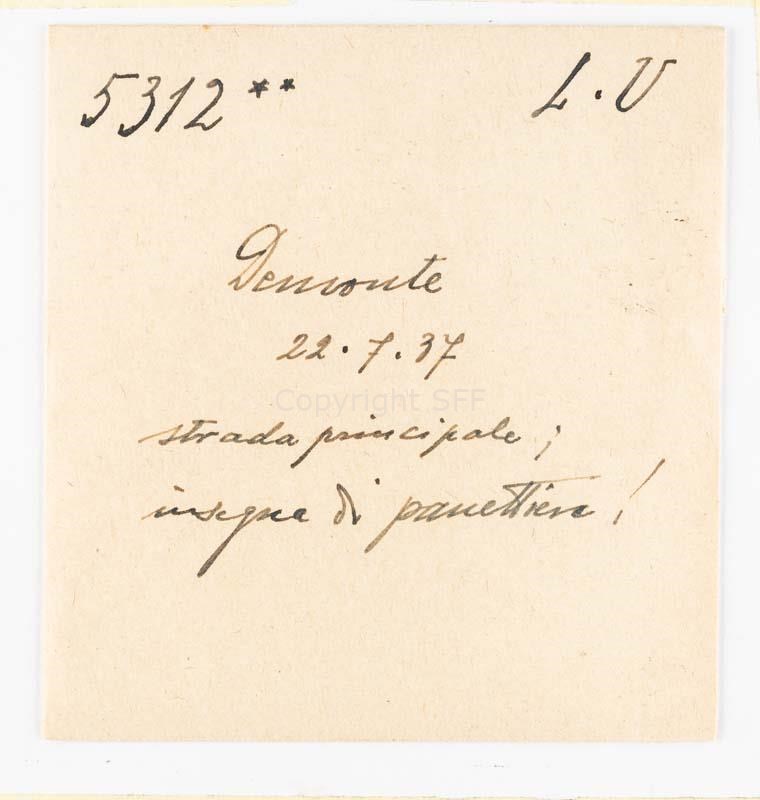 5312** L. V
Demonte
22.7.37
Copyright SFF
strada principale;
insegna di panettiere!